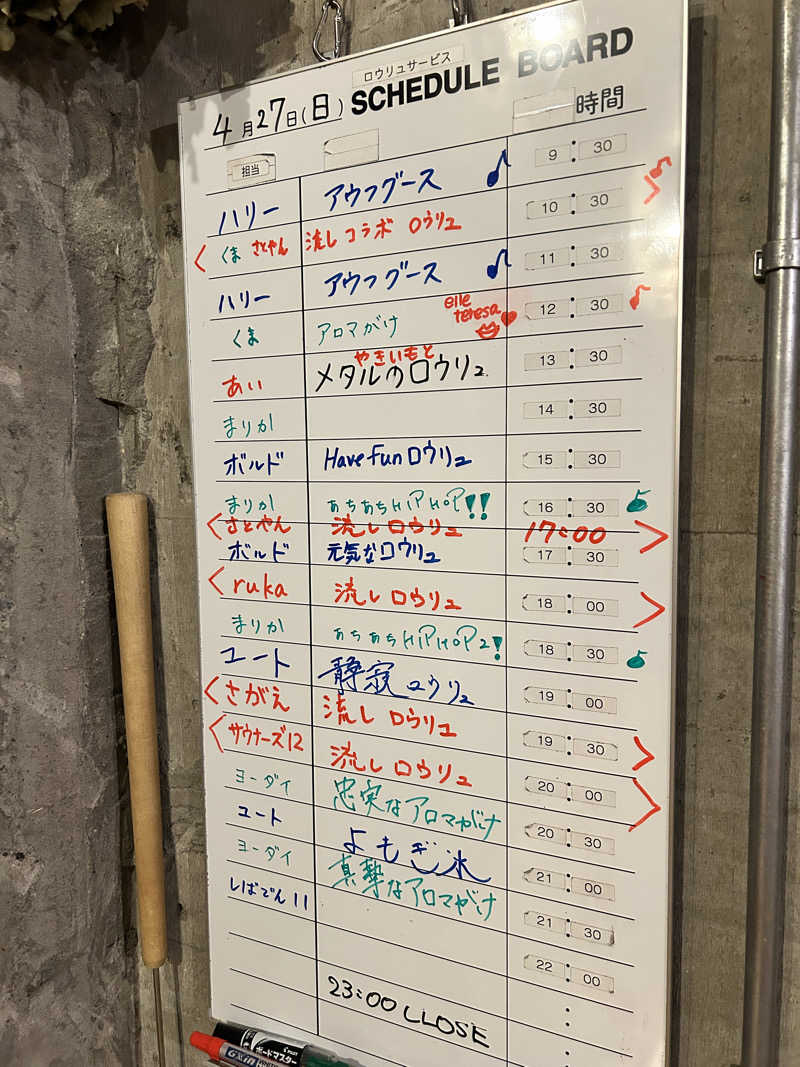 ロウリュサービス
4月27日(日) SCHEDULE BOARD
担当 時間
ハリー アウフグース ♪ 9:30
くま さとやん 流しコラボ ロウリュ 10:30
ハリー アウフグース ♪ 11:30
くま アロマがけ eille teresa 12:30
あい やきいもと メタルのロウリュ 13:30
まりか 14:30
ボルド Have fun ロウリュ 15:30
まりか あちあちHIPHOP!! 16:30
さとやん 流しロウリュ 17:00
ボルド 元気なロウリュ 17:30
ruka 流しロウリュ 18:00
まりか あちあちHIPHOP2! 18:30
ユート 静寂ロウリュ 19:00
さがえ 流しロウリュ 19:30
サウナーズ12 流しロウリュ 20:00
ヨーダイ 忠実なアロマがけ 20:30
ユート よもぎ氷 21:00
ヨーダイ 真摯なアロマがけ 21:30
しばでん11 22:00
23:00 CLOSE
ボードマスター